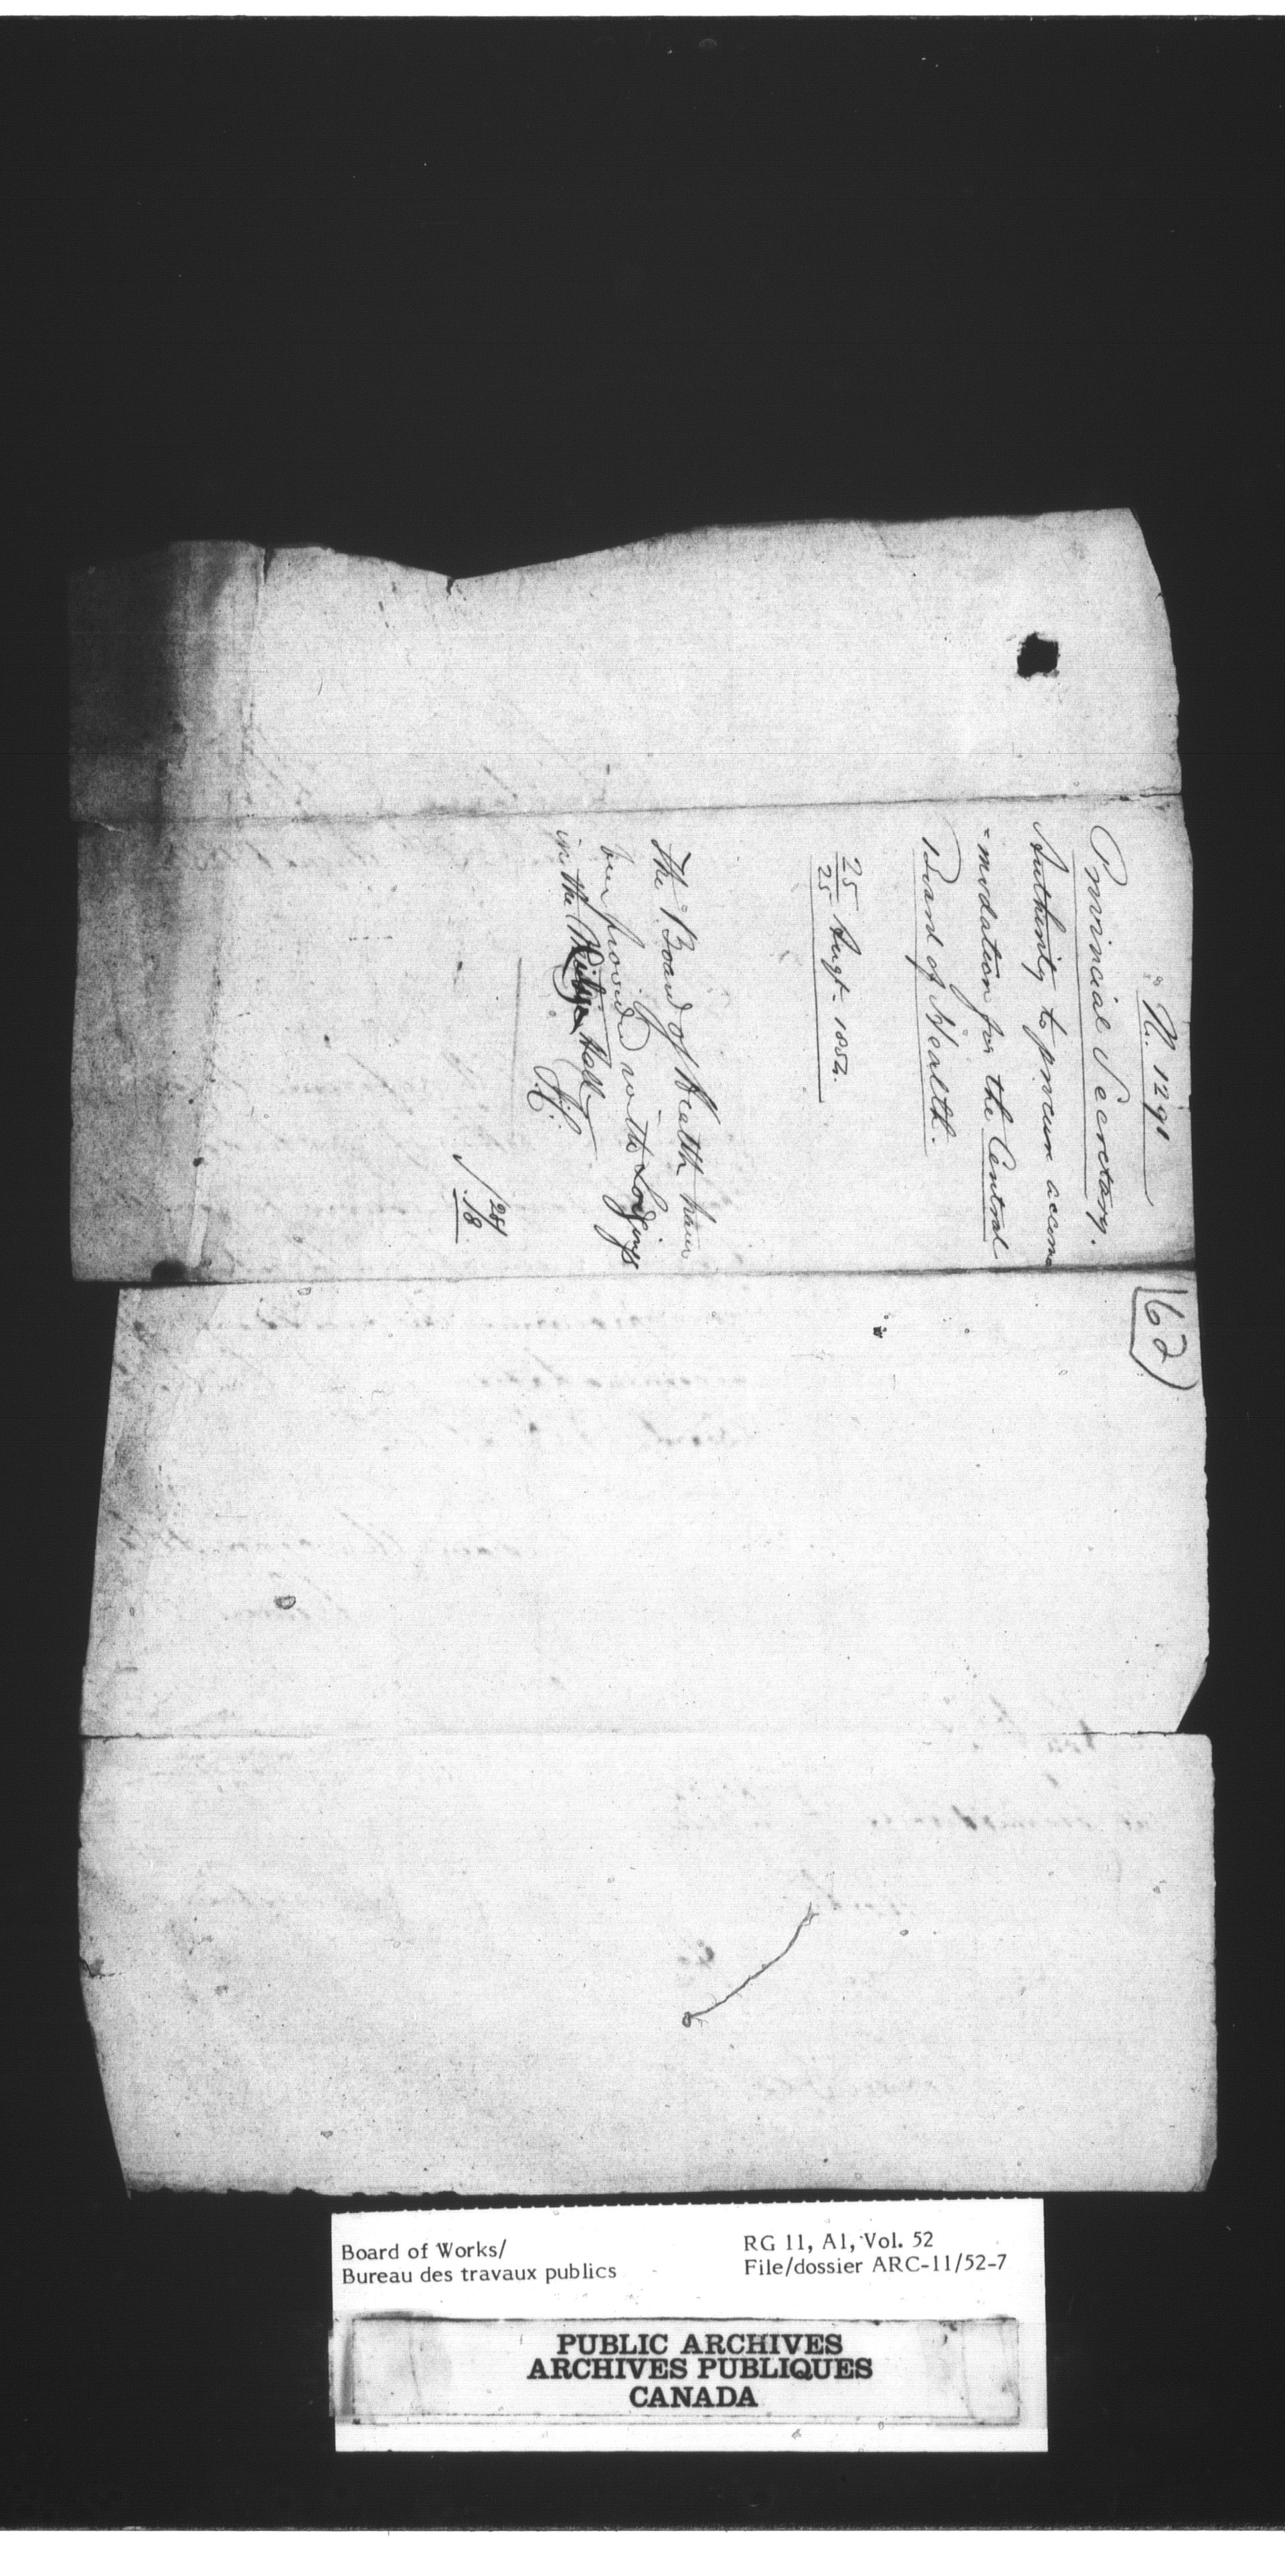 No. 1291
Provincial Secretary.
Authority to procure accom
=modation for the Central
Board of Health.
25
25 Augt. 1854.
The Board of Health have
been provided with Lodgings
in the Hall
284
18
62
Board of Works/
Bureau des travaux publics
RG 11, A1, Vol. 52
File/dossier ARC-11/52-7
PUBLIC ARCHIVES
ARCHIVES PUBLIQUES
CANADA